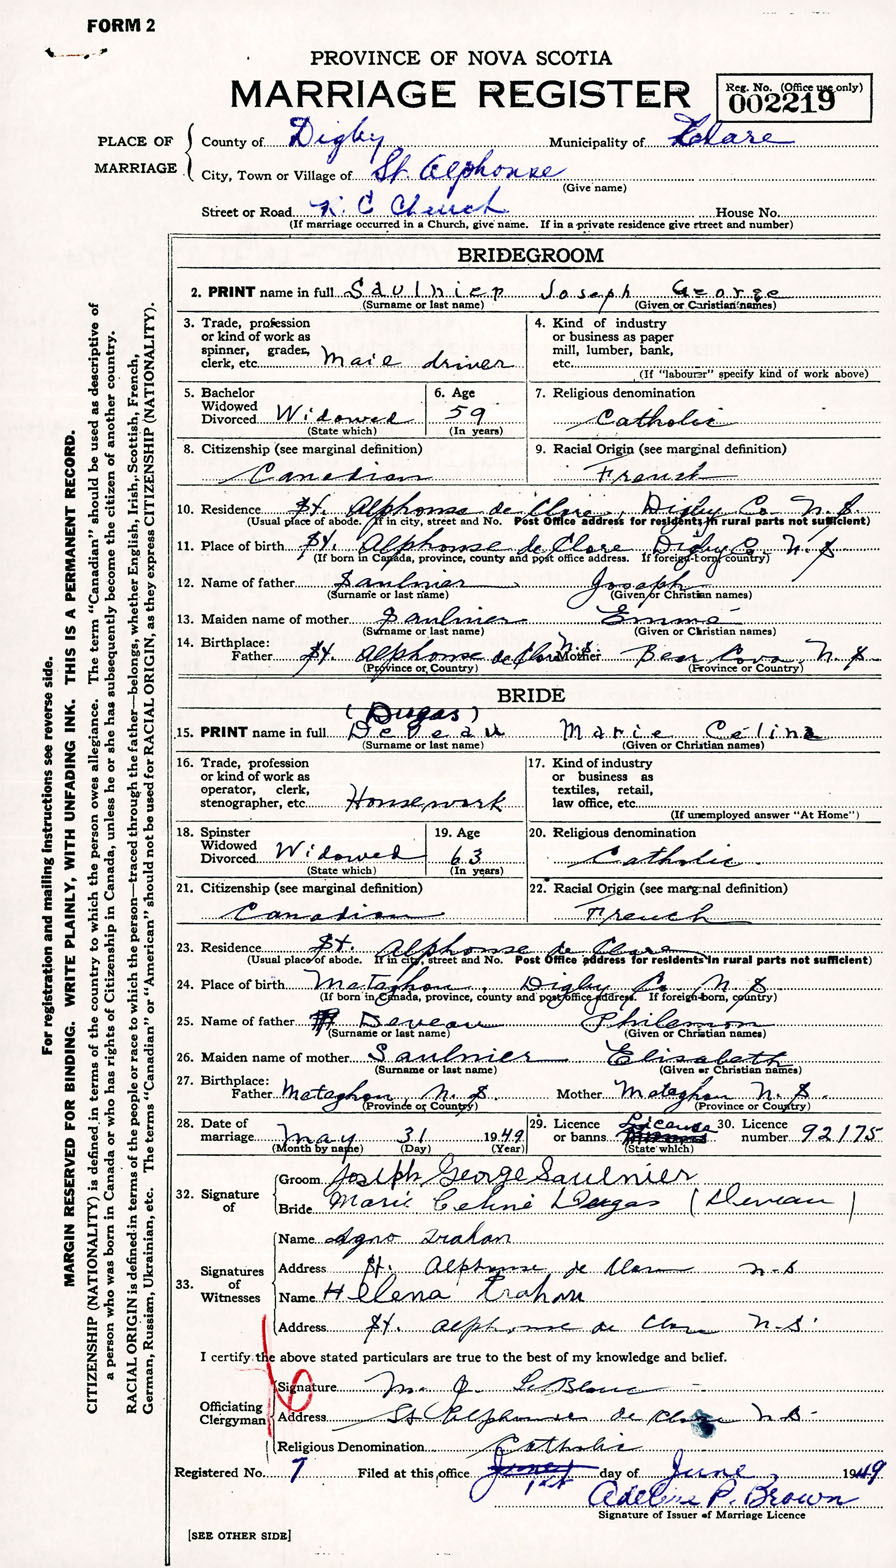 FORM 2
PROVINCE OF NOVA SCOTIA
MARRIAGE REGISTER
Reg. No. (Office use only)
002219
PLACE OF MARRIAGE
County of Digby Municipality of Clare
City, Town or Village of St. Alphonse
(Give name)
Street or Road R. C Church House No.
(If marriage occurred in a Church, give name. If in a private residence give street and number)
BRIDEGROOM
2. PRINT name in full Saulnier Joseph George
(Surname or last name) (Given or Christian names)
3. Trade, profession or kind of work as spinner, grader, clerk, etc. Maie driver
4. Kind of industry or business as paper mill, lumber, bank, etc.
(If "labourer" specify kind of work above)
5. Bachelor Widowed Divorced Widowed
(State which)
6. Age 59
(In years)
7. Religious denomination
Catholic
8. Citizenship (see marginal definition)
Canadian
9. Racial Origin (see marginal definition)
French
10. Residence St. Alphonse de Clare, Digby Co. N. S.
(Usual place of abode. If in city, street and No. Post Office address for residents in rural parts not sufficient)
11. Place of birth St. Alphonse de Clare Digby Co. N. S.
(If born in Canada, province, county and post office address. If foreign-born, country)
12. Name of father Saulnier Joseph
(Surname or last name) (Given or Christian names)
13. Maiden name of mother Saulnier Emma
(Surname or last name) (Given or Christian names)
14. Birthplace:
Father St. Alphonse de Clare N.S. Mother Bear Cove, N. S.
(Province or Country) (Province or Country)
BRIDE
(Dugas)
15. PRINT name in full Deveau Marie Célina
(Surname or last name) (Given or Christian names)
16. Trade, profession or kind of work as operator, clerk, stenographer, etc. Housework
17. Kind of industry or business as textiles, retail, law office, etc.
(If unemployed answer "At Home")
18. Spinster Widowed Divorced Widowed
(State which)
19. Age 63
(In years)
20. Religious denomination
Catholic
21. Citizenship (see marginal definition)
Canadian
22. Racial Origin (see marginal definition)
French
23. Residence St. Alphonse de Clare
(Usual place of abode. If in city, street and No. Post Office address for residents in rural parts not sufficient)
24. Place of birth Meteghan, Digby Co. N. S.
(If born in Canada, province, county and post office address. If foreign-born, country)
25. Name of father Deveau Philemon
(Surname or last name) (Given or Christian names)
26. Maiden name of mother Saulnier Elisabeth
(Surname or last name) (Given or Christian names)
27. Birthplace:
Father Meteghan, N. S. Mother Meteghan N. S.
(Province or Country) (Province or Country)
28. Date of marriage May 31 1949
(Month by name) (Day) (Year)
29. Licence or banns License
(State which)
30. Licence number 92175
32. Signature of
Groom Joseph George Saulnier
Bride Marie Celine Dugas (Deveau)
33. Signatures of Witnesses
Name Trahan
Address St. Alphonse de Clare N.S
Name Hélena Trahan
Address St. Alphonse de Clare N.S.
I certify the above stated particulars are true to the best of my knowledge and belief.
Officiating Clergyman
Signature M. J. LeBlanc
Address St Alphonse de Clare N.S.
Religious Denomination Catholic
Registered No. 7 Filed at this office 1st day of June 1949
Adeline P. Brown
Signature of Issuer of Marriage Licence
[SEE OTHER SIDE]
For registration and mailing instructions see reverse side.
MARGIN RESERVED FOR BINDING. WRITE PLAINLY, WITH UNFADING INK. THIS IS A PERMANENT RECORD.
CITIZENSHIP (NATIONALITY) is defined in terms of the country to which the person owes allegiance. The term "Canadian" should be used as descriptive of
a person who was born in Canada or who has rights of Citizenship in Canada, unless he or she has subsequently become the citizen of another country.
RACIAL ORIGIN is defined in terms of the people or race to which the person—traced through the father—belongs, whether English, Irish, Scottish, French,
German, Russian, Ukrainian, etc. The terms "Canadian" or "American" should not be used for RACIAL ORIGIN, as they express CITIZENSHIP (NATIONALITY).